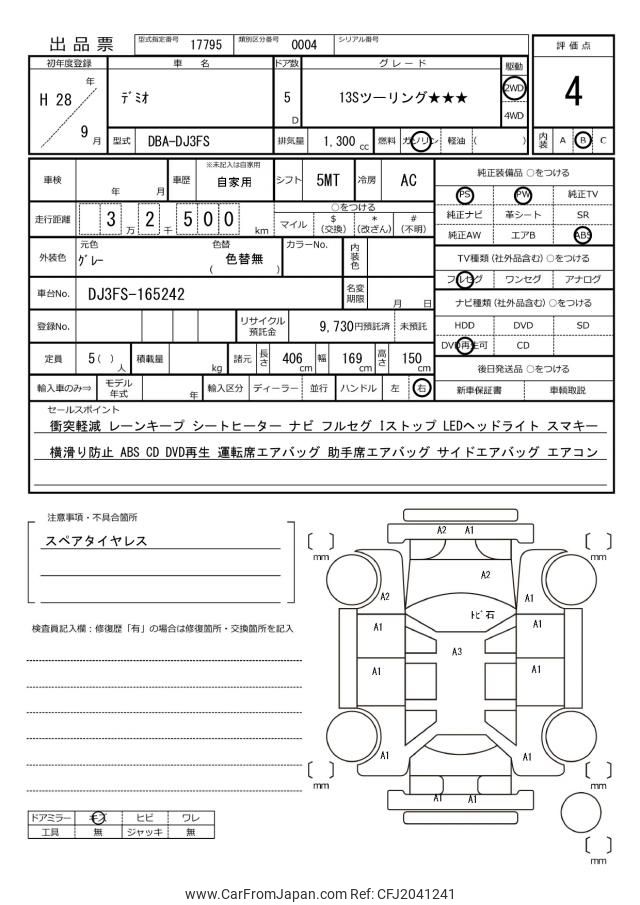 出品票 型式指定番号 17795 類別区分番号 0004 シリアル番号
評価点
4
内装 A B C
初年度登録 車名 ドア数 グレード 駆動
H 28 年 9 月
デミオ
5 D
13Sツーリング★★★
2WD
4WD
型式 DBA-DJ3FS 排気量 1,300 cc 燃料 ガソリン 軽油 ( )
車検 年 月 車歴 ※未記入は自家用 自家用 シフト 5MT 冷房 AC
走行距離 3 万 2 千 5 0 0 km
○をつける
マイル $ (交換) * (改ざん) # (不明)
外装色 元色 グレー 色替 ( 色替無 ) カラーNo. 内装色
車台No. DJ3FS-165242 名変期限 月 日
登録No. リサイクル預託金 9,730円預託済 未預託
定員 5( ) 人 積載量 kg 諸元 長さ 406 cm 幅 169 cm 高さ 150 cm
輸入車のみ⇒ モデル年式 年 輸入区分 ディーラー 並行 ハンドル 左 右
純正装備品 ○をつける
PS PW 純正TV
純正ナビ 革シート SR
純正AW エアB ABS
TV種類 (社外品含む) ○をつける
フルセグ ワンセグ アナログ
ナビ種類 (社外品含む) ○をつける
HDD DVD SD
DVD再生可 CD
後日発送品 ○をつける
新車保証書 車輌取説
セールスポイント
衝突軽減 レーンキープ シートヒーター ナビ フルセグ Iストップ LEDヘッドライト スマキー
横滑り防止 ABS CD DVD再生 運転席エアバッグ 助手席エアバッグ サイドエアバッグ エアコン
注意事項・不具合箇所
スペアタイヤレス
検査員記入欄：修復歴「有」の場合は修復箇所・交換箇所を記入
ドアミラー キズ ヒビ ワレ
工具 無 ジャッキ 無
A2 A1
mm mm
A2
A2 A1
トビ石
A1 A1
A3
A1 A1
A1 A1
mm mm
A1 A1
mm
www.CarFromJapan.com Ref: CFJ2041241